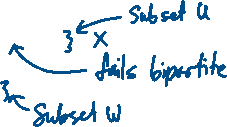 Subset U
} X
fails bipartite
}
Subset W